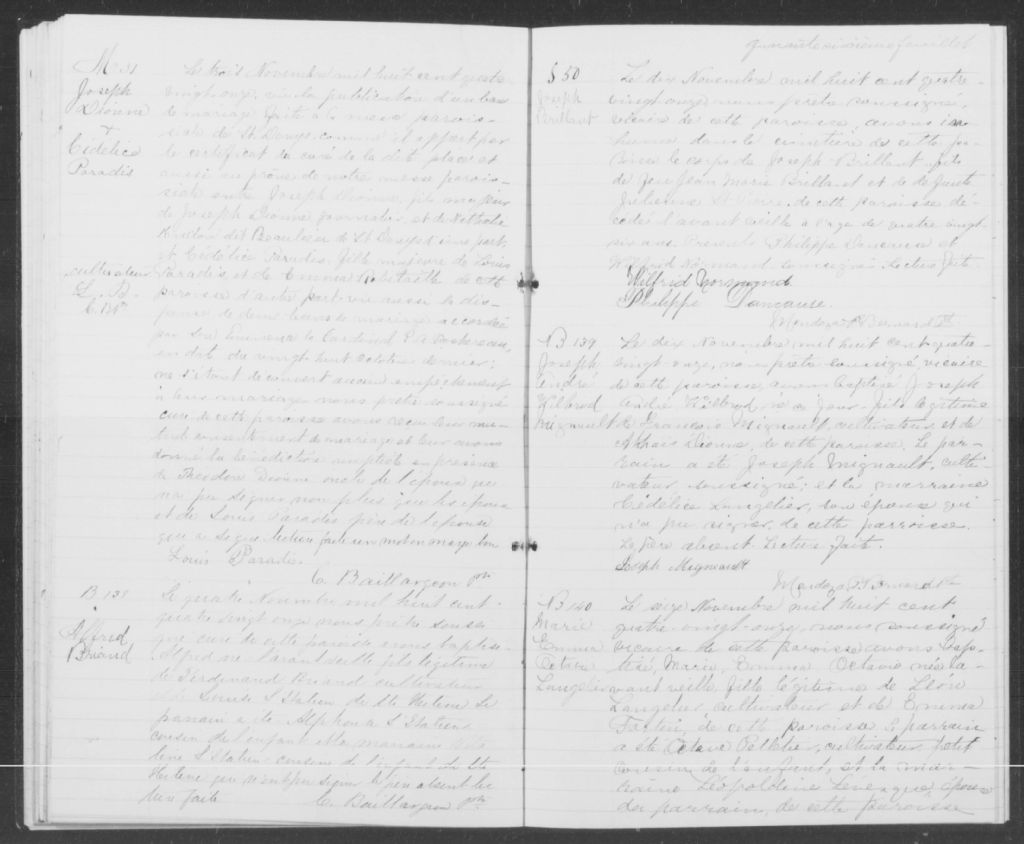 M 31
Joseph
Dionne
+
Cédélice
Paradis
cultivateur
L. P.
C. B. ptr
Le trois Novembre mil huit cent quatre
vingt onze, vu la publication d'un ban
de mariage faite à la messe parois-
siale de St Denys, comme il appert par
le certificat du curé de la dite place et
aussi au prone de notre messe parois-
siale entre Joseph Dionne, fils majeur
de Joseph Dionne journalier et de Nathalie
dit Beaulieu de St Denys d'une part,
et Cédélice Paradis, fille majeure de Louis
Paradis et de Robitaille de cette
paroisse d'autre part vu aussi la dis-
pense de deux bans de mariage accordée
par Son Eminence le Cardinal E. A. Taschereau,
en date du vingt huit Octobre dernier;
ne s'étant découvert aucun empêchement
à leur mariage nous prêtre soussigné
curé de cette paroisse avons reçu leur mu-
tuel consentement de mariage et leur avons
donné la bénédiction nuptiale en présence
de Théodore Dionne oncle de l'époux qui
n'a pu signer non plus que les époux
et de Louis Paradis père de l'épouse
qui a signé lecture faite un mot en marge bon
Louis Paradis.
C. Baillargeon ptr
B 138
Alfred
Briand
Le quatre Novembre mil huit cent
quatre vingt onze nous prêtre soussi-
gné curé de cette paroisse avons baptisé
Alfred né l'avant veille fils légitime
de Ferdinand Briand cultivateur
et de Louise St Etatien de Ste Hélène Le
parrain a été Alphonse St Etatien
cousin de l'enfant et la marraine
St Etatien cousine de l'enfant de Ste
Hélène qui n'ont pu signer le père absent lec
ture faite
C. Baillargeon ptr
quarante sixième feuillet
S 50
Joseph
Brillant
Le dix Novembre mil huit cent quatre-
vingt onze, nous, prêtre soussigné,
vicaire de cette paroisse, avons in-
humé dans le cimetière de cette pa-
roisse le corps de Joseph Brillant, fils
de feu Jean Marie Brillant et de défunte
Julienne St Pierre, de cette paroisse dé-
cédé l'avant veille à l'age de quatre vingt
six ans. Présents Philippe Dancause et
Wilfrid Normand soussignés. Lecture faite.
Wilfrid Normand
Philippe Dancause.
Mendoza P. Bernard Ptr
B 139
Joseph
André
Wilbrod
Mignault
Le dix Novembre, mil huit cent quatre-
vingt onze, nous prêtre soussigné, vicaire
de cette paroisse, avons baptisé Joseph
André Wilbrod, né ce jour, fils légitime
de François Mignault, cultivateur et de
Athaïs Dionne, de cette paroisse. Le par-
rain a été Joseph Mignault, culti-
vateur soussigné; et la marraine
Cédélice Langelier, son épouse qui
n'a pu signer, de cette parroisse.
Le père absent. Lecture faite.
Joseph Migneault
Mendoza P. Bernard Ptr
B 140
Marie
Emma
Octavie
Langelier
Le seize Novembre mil huit cent
quatre-vingt-onze, nous, soussigné
vicaire de cette paroisse avons bap-
tisé, Marie, Emma, Octavie née l'a-
vant veille, fille légitime de Léon
Langelier cultivateur et de Emma
Fortin, de cette paroisse Le parrain
a été Octave Pelletier, cultivateur, petit
cousin de l'enfant, et la mar-
raine Léopoldine Levesque épouse
du parrain, de cette paroisse